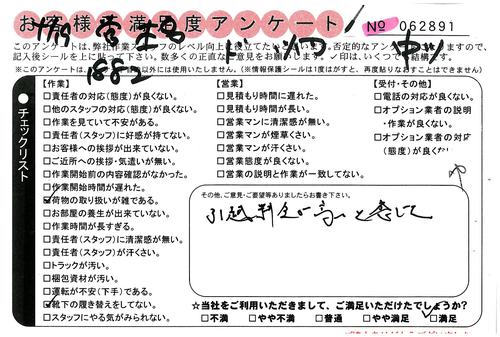 お客様満足度アンケート
No 062891
このアンケートは、弊社作業スタッフのレベル向上に役立てたい
数多くの正直なご意見をお願いします。✓印は、いくつでも結構です。
※このアンケートは
以外には使用いたしません。(※情報保護シールは1度はがすと、再度貼りなおすことはできません)
チェックリスト
【作業】
□責任者の対応(態度)が良くない。
□他のスタッフの対応(態度)が良くない。
□作業を見ていて不安がある。
□責任者(スタッフ)に好感が持てない。
□お客様への挨拶が出来ていない。
□ご近所への挨拶・気遣いが無い。
□作業開始前の内容確認がなかった。
□作業開始時間が遅れた。
☑荷物の取り扱いが雑である。
□お部屋の養生が出来ていない。
□作業時間が長すぎる。
□責任者(スタッフ)に清潔感が無い。
□責任者(スタッフ)が汗くさい。
□トラックが汚い。
□梱包資材が汚い。
□運転が不安(下手)である。
☑靴下の履き替えをしてない。
□スタッフにやる気がみられない。
【営業】
□見積もり時間に遅れた。
□見積もり時間が長い。
□営業マンに清潔感が無い。
□営業マンが煙草くさい。
□営業マンが汗くさい。
□営業態度が良くない。
□営業の説明と作業が一致してない。
【受付・その他】
□電話の対応が良くない。
□オプション業者の説明
・作業が良くない。
□オプション業者の対応
(態度)が良くない。
その他、ご意見・ご要望等ありましたらお書き下さい。
引越料金が高いと感じた
☆当社をご利用いただきまして、ご満足いただけたでしょうか?
□不満 □やや不満 □普通 □やや満足 ☑満足